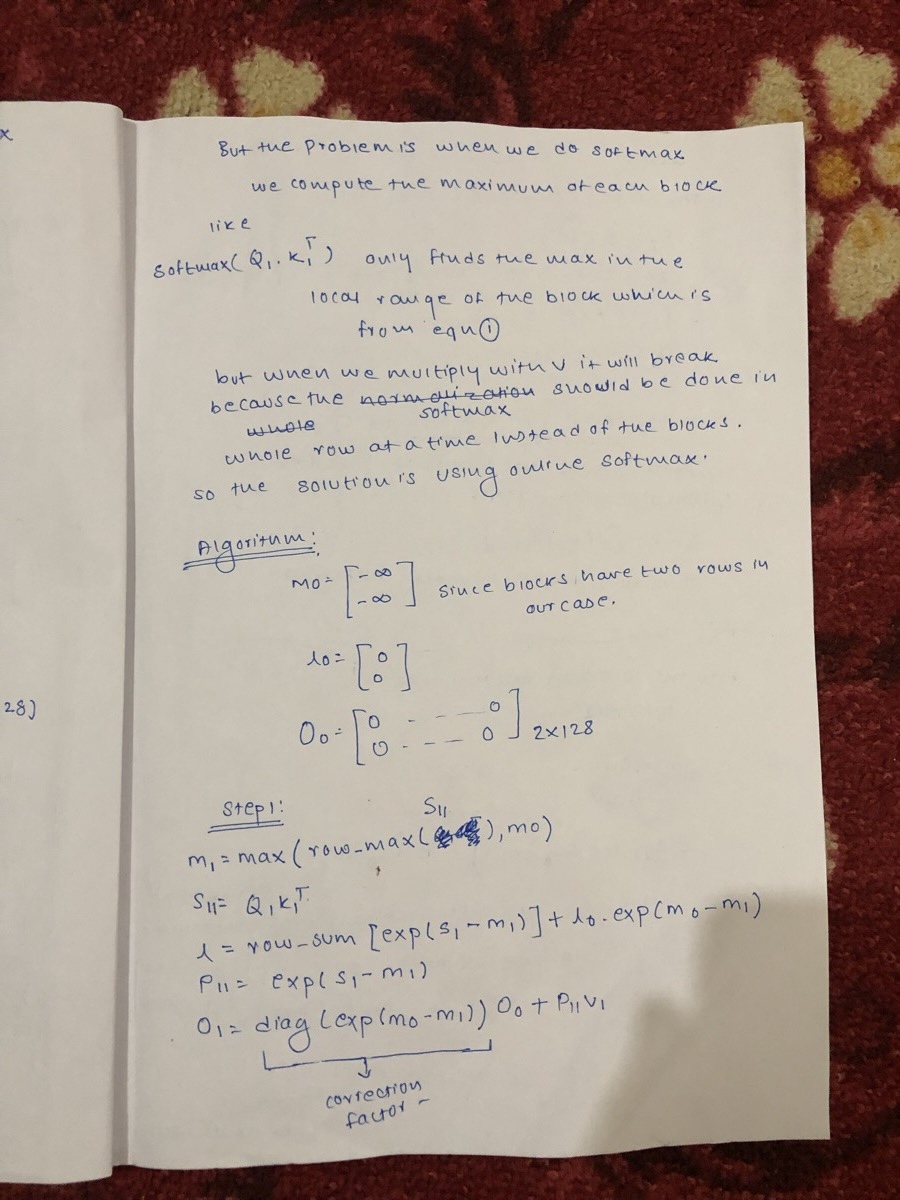 x
28)
But the problem is when we do softmax
we compute the maximum of each block
like
softmax(Q₁.K₁ᵀ) only finds the max in the
local range of the block which is
from equn ①
but when we multiply with V it will break
because the normalization should be done in
softmax
whole
whole row at a time instead of the blocks.
so the solution is using online softmax.
Algorithm:
m0 = [-∞ -∞] since blocks have two rows in
our case.
l0 = [0 0]
O₀ = [0 - - - 0 0 - - - 0] 2x128
Step 1:
S₁₁
m₁ = max(row_max( ), m0)
S₁₁ = Q₁K₁ᵀ
l = row_sum [exp(s₁ - m₁)] + l₀.exp(m₀ - m₁)
P₁₁ = exp(s₁ - m₁)
O₁ = diag(exp(m₀ - m₁)) O₀ + P₁₁V₁
correction
factor -